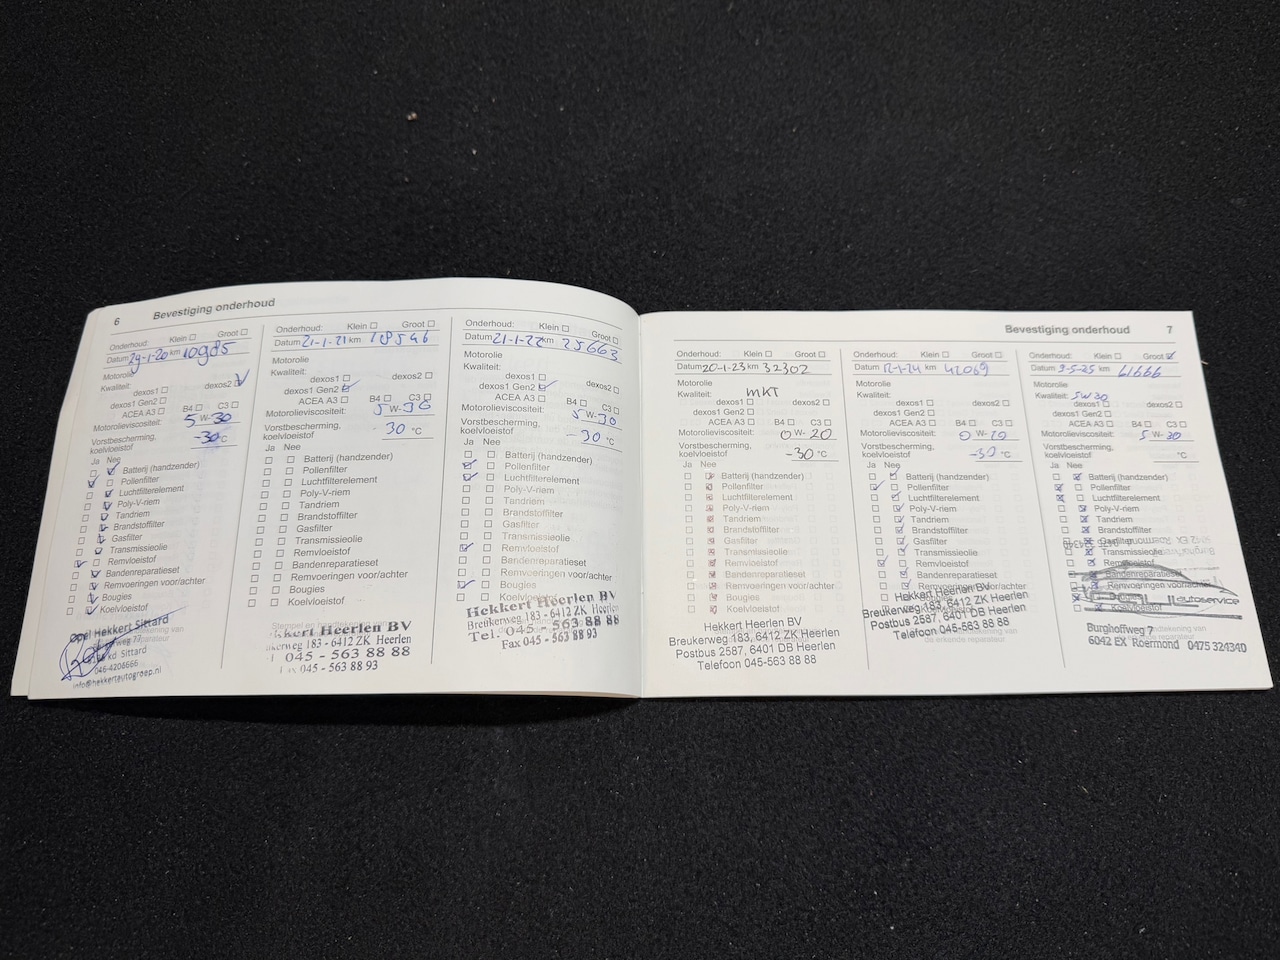 6 Bevestiging onderhoud
Onderhoud: Klein Groot
Datum 29-1-20 km 10985
Motorolie
Kwaliteit:
dexos1 dexos2
dexos1 Gen2
ACEA A3 B4 C3
Motorolieviscositeit: 5 W-30
Vorstbescherming,
koelvloeistof -30°C
Ja Nee
Batterij (handzender)
Pollenfilter
Luchtfilterelement
Poly-V-riem
Tandriem
Brandstoffilter
Gasfilter
Transmissieolie
Remvloeistof
Bandenreparatieset
Remvoeringen voor/achter
Bougies
Koelvloeistof
Opel Hekkert Sittard
Sittard
046-4206666
info@hekkertautogroep.nl
Onderhoud: Klein Groot
Datum 21-1-21 km 18546
Motorolie
Kwaliteit:
dexos1 dexos2
dexos1 Gen2
ACEA A3 B4 C3
Motorolieviscositeit: 5 W-30
Vorstbescherming,
koelvloeistof 30 °C
Ja Nee
Batterij (handzender)
Pollenfilter
Luchtfilterelement
Poly-V-riem
Tandriem
Brandstoffilter
Gasfilter
Transmissieolie
Remvloeistof
Bandenreparatieset
Remvoeringen voor/achter
Bougies
Koelvloeistof
Hekkert Heerlen BV
183 - 6412 ZK Heerlen
045 - 563 88 88
Fax 045 - 563 88 93
Onderhoud: Klein Groot
Datum 21-1-22 km 25663
Motorolie
Kwaliteit:
dexos1 dexos2
dexos1 Gen2
ACEA A3 B4 C3
Motorolieviscositeit: 5 W-30
Vorstbescherming,
koelvloeistof -30 °C
Ja Nee
Batterij (handzender)
Pollenfilter
Luchtfilterelement
Poly-V-riem
Tandriem
Brandstoffilter
Gasfilter
Transmissieolie
Remvloeistof
Bandenreparatieset
Remvoeringen voor/achter
Bougies
Koelvloeistof
Hekkert Heerlen BV
Breukerweg 183 - 6412 ZK Heerlen
Tel. 045 - 563 88 88
Fax 045 - 563 88 93
Bevestiging onderhoud 7
Onderhoud: Klein Groot
Datum 20-1-23 km 32302
Motorolie
Kwaliteit: MKT
dexos1 dexos2
dexos1 Gen2
ACEA A3 B4 C3
Motorolieviscositeit: 0 W-20
Vorstbescherming,
koelvloeistof -30 °C
Ja Nee
Batterij (handzender)
Pollenfilter
Luchtfilterelement
Poly-V-riem
Tandriem
Brandstoffilter
Gasfilter
Transmissieolie
Remvloeistof
Bandenreparatieset
Remvoeringen voor/achter
Bougies
Koelvloeistof
Hekkert Heerlen BV
Breukerweg 183, 6412 ZK Heerlen
Postbus 2587, 6401 DB Heerlen
Telefoon 045-563 88 88
Onderhoud: Klein Groot
Datum 12-1-24 km 42069
Motorolie
Kwaliteit:
dexos1 dexos2
dexos1 Gen2
ACEA A3 B4 C3
Motorolieviscositeit: 0 W-20
Vorstbescherming,
koelvloeistof -30 °C
Ja Nee
Batterij (handzender)
Pollenfilter
Luchtfilterelement
Poly-V-riem
Tandriem
Brandstoffilter
Gasfilter
Transmissieolie
Remvloeistof
Bandenreparatieset
Remvoeringen voor/achter
Bougies
Hekkert Heerlen BV
Breukerweg 183, 6412 ZK Heerlen
Postbus 2587, 6401 DB Heerlen
Telefoon 045-563 88 88
Onderhoud: Klein Groot
Datum 9-5-25 km 61666
Motorolie
Kwaliteit: 5W30
dexos1 dexos2
dexos1 Gen2
ACEA A3 B4 C3
Motorolieviscositeit: 5 W-30
Vorstbescherming,
koelvloeistof °C
Ja Nee
Batterij (handzender)
Pollenfilter
Luchtfilterelement
Poly-V-riem
Tandriem
Brandstoffilter
Gasfilter
Transmissieolie
Remvloeistof
Bandenreparatieset
Remvoeringen voor/achter
Bougies
Koelvloeistof
autoservice
Burghoffweg 7
6042 EX Roermond 0475 324340